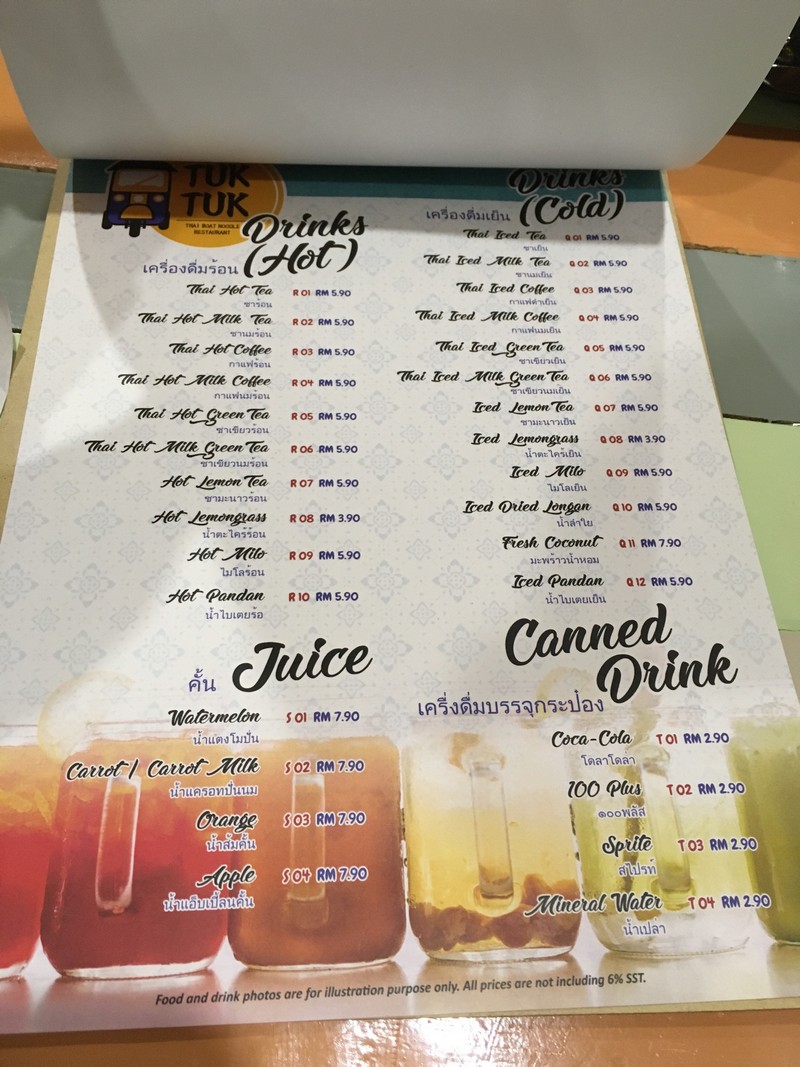 TUK
TUK
THAI BOAT NOODLE
RESTAURANT
Drinks
เครื่องดื่มร้อน (Hot)
Thai Hot Tea R 01 RM 5.90
ชาร้อน
Thai Hot Milk Tea R 02 RM 5.90
ชานมร้อน
Thai Hot Coffee R 03 RM 5.90
กาแฟร้อน
Thai Hot Milk Coffee R 04 RM 5.90
กาแฟนมร้อน
Thai Hot Green Tea R 05 RM 5.90
ชาเขียวร้อน
Thai Hot Milk Green Tea R 06 RM 5.90
ชาเขียวนมร้อน
Hot Lemon Tea R 07 RM 5.90
ชามะนาวร้อน
Hot Lemongrass R 08 RM 3.90
น้ำตะไคร้ร้อน
Hot Milo R 09 RM 5.90
ไมโลร้อน
Hot Pandan R 10 RM 5.90
น้ำใบเตยร้อ
Drinks
เครื่องดื่มเย็น (Cold)
Thai Iced Tea Q 01 RM 5.90
ชาเย็น
Thai Iced Milk Tea Q 02 RM 5.90
ชานมเย็น
Thai Iced Coffee Q 03 RM 5.90
กาแฟดำเย็น
Thai Iced Milk Coffee Q 04 RM 5.90
กาแฟนมเย็น
Thai Iced Green Tea Q 05 RM 5.90
ชาเขียวเย็น
Thai Iced Milk Green Tea Q 06 RM 5.90
ชาเขียวนมเย็น
Iced Lemon Tea Q 07 RM 5.90
ชามะนาวเย็น
Iced Lemongrass Q 08 RM 3.90
น้ำตะไคร้เย็น
Iced Milo Q 09 RM 5.90
ไมโลเย็น
Iced Dried Longan Q 10 RM 5.90
น้ำลำใย
Fresh Coconut Q 11 RM 7.90
มะพร้าวน้ำหอม
Iced Pandan Q 12 RM 5.90
น้ำใบเตยเย็น
คั้น Juice
Watermelon S 01 RM 7.90
น้ำแตงโมปั่น
Carrot / Carrot Milk S 02 RM 7.90
น้ำแครอทปั่นนม
Orange S 03 RM 7.90
น้ำส้มคั้น
Apple S 04 RM 7.90
น้ำแอ๊บเปิ้ลนคั้น
Canned
Drink
เครื่งดื่มบรรจุกระป๋อง
Coca-Cola T 01 RM 2.90
โคลาโคลา
100 Plus T 02 RM 2.90
๑๐๐พลัส
Sprite T 03 RM 2.90
สไปรท์
Mineral Water T 04 RM 2.90
น้ำเปล่า
Food and drink photos are for illustration purpose only. All prices are not including 6% SST.